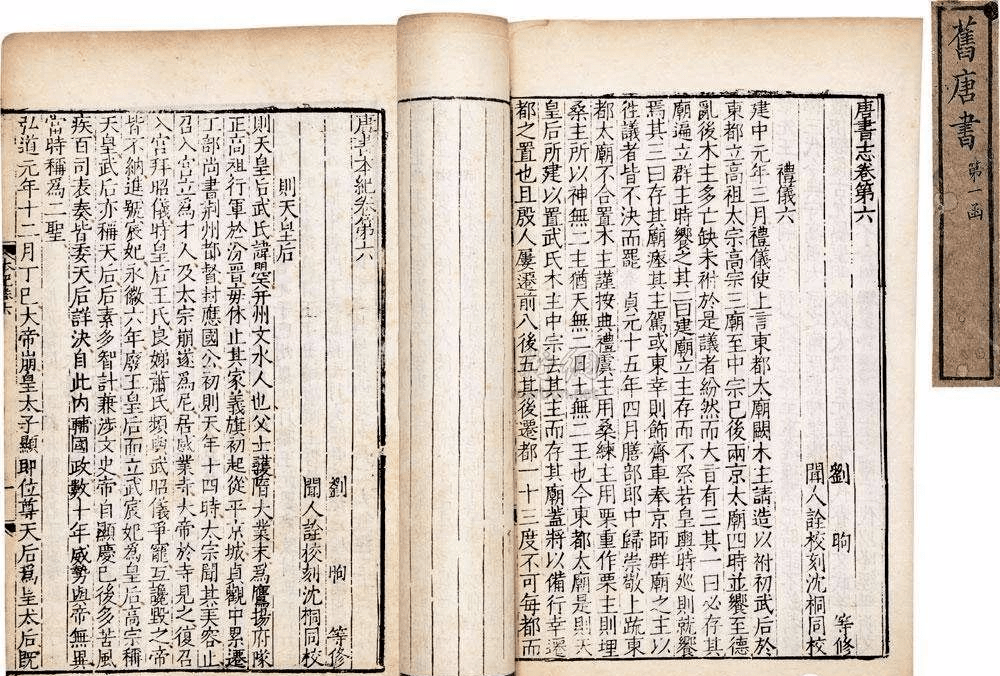 舊唐書 第一函
唐書志卷第六
劉 昫 等修
聞人詮校刻沈桐同校
禮儀六
建中元年三月禮儀使上言東都太廟闕木主請造以祔初武后於
東都立高祖太宗高宗三廟至中宗已後兩京太廟四時並饗至德
亂後木主多亡缺未祔於是議者紛然而大旨有三其一曰必存其
廟遍立群主時饗之其二曰建廟立主存而不祭若皇輿時巡則就饗
焉其三曰存其廟瘞其主駕或東幸則飾齋車奉京師群廟之主以
徃議者皆不決而罷 貞元十五年四月膳部郎中歸崇敬上疏東
都太廟不合置木主謹按典禮虞主用桑練主用栗重作栗主則埋
桑主所以神無二主猶天無二日土無二王也今東都太廟是則天
皇后所建以置武氏木主中宗去其主而存其廟蓋將以備行幸遷
都之置也且殷人屢遷前八後五其後遷都一十三度不可每都而
唐書本紀卷第六
劉 昫 等修
聞人詮校刻沈桐同校
則天皇后
則天皇后武氏諱曌并州文水人也父士彠隋大業末爲鷹揚府隊
正高祖行軍於汾晉每休止其家義旗初起從平京城貞觀中累遷
工部尚書荆州都督封應國公初則天年十四時太宗聞其美容止
召入宮立爲才人及太宗崩遂爲尼居感業寺大帝於寺見之復召
入宮拜昭儀時皇后王氏良娣蕭氏頻與武昭儀爭寵互讒毀之帝
皆不納進號宸妃永徽六年廢王皇后而立武宸妃爲皇后高宗稱
天皇武后亦稱天后后素多智計兼涉文史帝自顯慶已後多苦風
疾百司表奏皆委天后詳決自此內輔國政數十年威勢與帝無異
當時稱爲二聖
弘道元年十二月丁巳大帝崩皇太子顯即位尊天后爲皇太后既